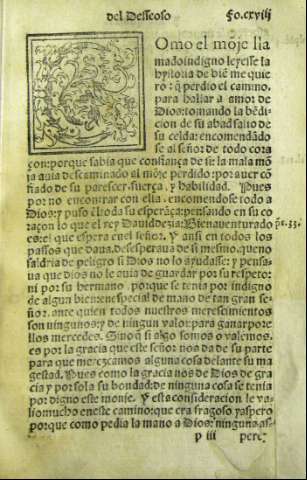 del Desseoso Fo.cxviij
COmo el mõje lla
mado indigno leyesse la
hystoria de biẽ me quie
ro: q̃ perdio el camino,
para hallar a amor de
Dios: tomando la bẽdi
cion de su abad salio de
su celda: encomendãdo
se al señor de todo cora
çon: porque sabia que confiança de si: la mala mõ
ja auia descaminado al mõje perdido: por auer cõ
fiado de su parescer, fuerça, y habilidad. Pues
por no encontrar con ella, encomendose todo a
Dios: y puso ẽl toda su esperãça: pensando en su co
raçon lo que el rey Dauid dezia: Bienauenturado ps.33.
es: el que espera en el señor. Y ansi en todos los
passos que daua, desesperaua de si mesmo, que no
saldria de peligro si Dios no lo ayudasse: y pensa
ua que dios no le auia de guardar por su respeto:
ni por su hermano, porque se tenia por indigno
de algun bien en especial de mano de tan gran se-
ñor, ante quien todos nuestros merescimientos
son ningunos: y de ningun valor para ganar por e
llos mercedes. Sino q̃ si algo somos o valemos,
es por la gracia que este señor nos da de su parte
para que merezcamos alguna cosa delante su ma
gestad. Pues como la gracia nos de Dios de gra
cia y por sola su bondad: de ninguna cosa se tenia
por digno este monje. Y esta consideracion le va
lio mucho en este camino: que era fragoso y aspero
porque como pedia la mano a Dios: ninguna as-
p iij perez